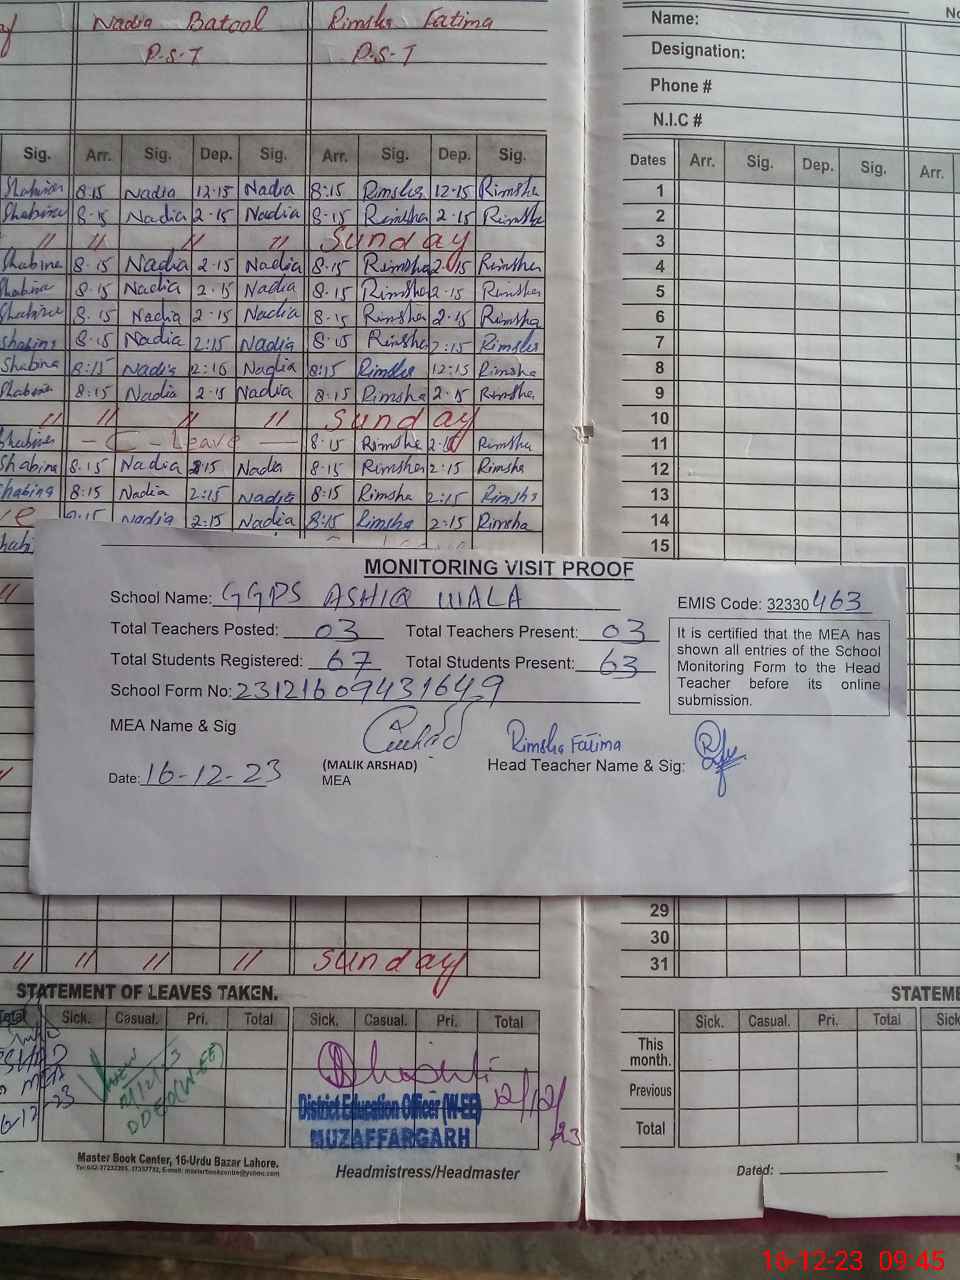 Nadia Batool Rimsha Fatima
P.S.T P.S.T
Name:
Designation:
Phone #
N.I.C #
Sig. Arr. Sig. Dep. Sig. Arr. Sig. Dep. Sig.
Dates Arr. Sig. Dep. Sig. Arr.
Shabina 8:15 Nadia 12:15 Nadia 8:15 Rimsha 12:15 Rimsha 1
Shabina 8:15 Nadia 2:15 Nadia 8:15 Rimsha 2:15 Rimsha 2
" " " " Sunday 3
Shabina 8:15 Nadia 2:15 Nadia 8:15 Rimsha 2:15 Rimsha 4
Shabina 8:15 Nadia 2:15 Nadia 8:15 Rimsha 2:15 Rimsha 5
Shabina 8:15 Nadia 2:15 Nadia 8:15 Rimsha 2:15 Rimsha 6
Shabina 8:15 Nadia 2:15 Nadia 8:15 Rimsha 2:15 Rimsha 7
Shabina 8:15 Nadia Nadia 8:15 Rimsha 12:15 Rimsha 8
Shabina 8:15 Nadia 2:15 Nadia 8:15 Rimsha 2:15 Rimsha 9
" " " " Sunday 10
Shabina - C - Leave - 8:15 Rimsha 2:15 Rimsha 11
Shabina 8:15 Nadia 2:15 Nadia 8:15 Rimsha 2:15 Rimsha 12
Shabina 8:15 Nadia 2:15 Nadia 8:15 Rimsha 2:15 Rimsha 13
8:15 Nadia 2:15 Nadia 8:15 Rimsha 2:15 Rimsha 14
15
MONITORING VISIT PROOF
School Name: GGPS ASHIQ WALA EMIS Code: 32330463
Total Teachers Posted: 03 Total Teachers Present: 03
Total Students Registered: 67 Total Students Present: 63
School Form No: 23121609431649
It is certified that the MEA has
shown all entries of the School
Monitoring Form to the Head
Teacher before its online
submission.
MEA Name & Sig Rimsha Fatima
(MALIK ARSHAD) Head Teacher Name & Sig:
Date: 16-12-23 MEA
29
30
" " " " Sunday 31
STATEMENT OF LEAVES TAKEN. STATEME
Total Sick. Casual. Pri. Total Sick. Casual. Pri. Total
Sick. Casual. Pri. Total Sick
This
month.
Previous
Total
DDEO(W-EE)
District Education Officer (W-EE)
MUZAFFARGARH
12/12/23
Master Book Center, 16-Urdu Bazar Lahore.
Headmistress/Headmaster
Dated:
16-12-23 09:45